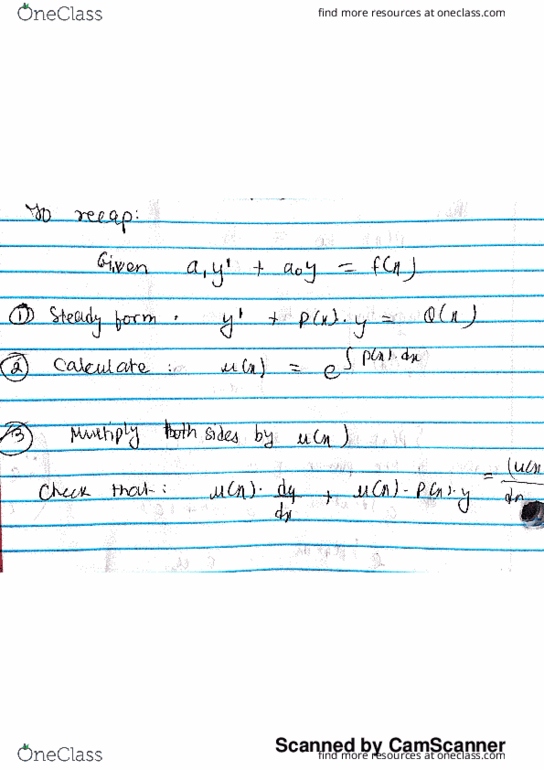 OneClass find more resources at oneclass.com
To recap:
Given a₁y' + a₀y = f(x)
① Steady form . y' + P(x)· y = Q(x)
② Calculate : u(x) = e^∫ P(x)·dx
③ Multiply both sides by u(x)
Check that : u(x)· dy/dx + u(x)· P(x)·y = (u(x /dx
Scanned by CamScanner
OneClass find more resources at oneclass.com